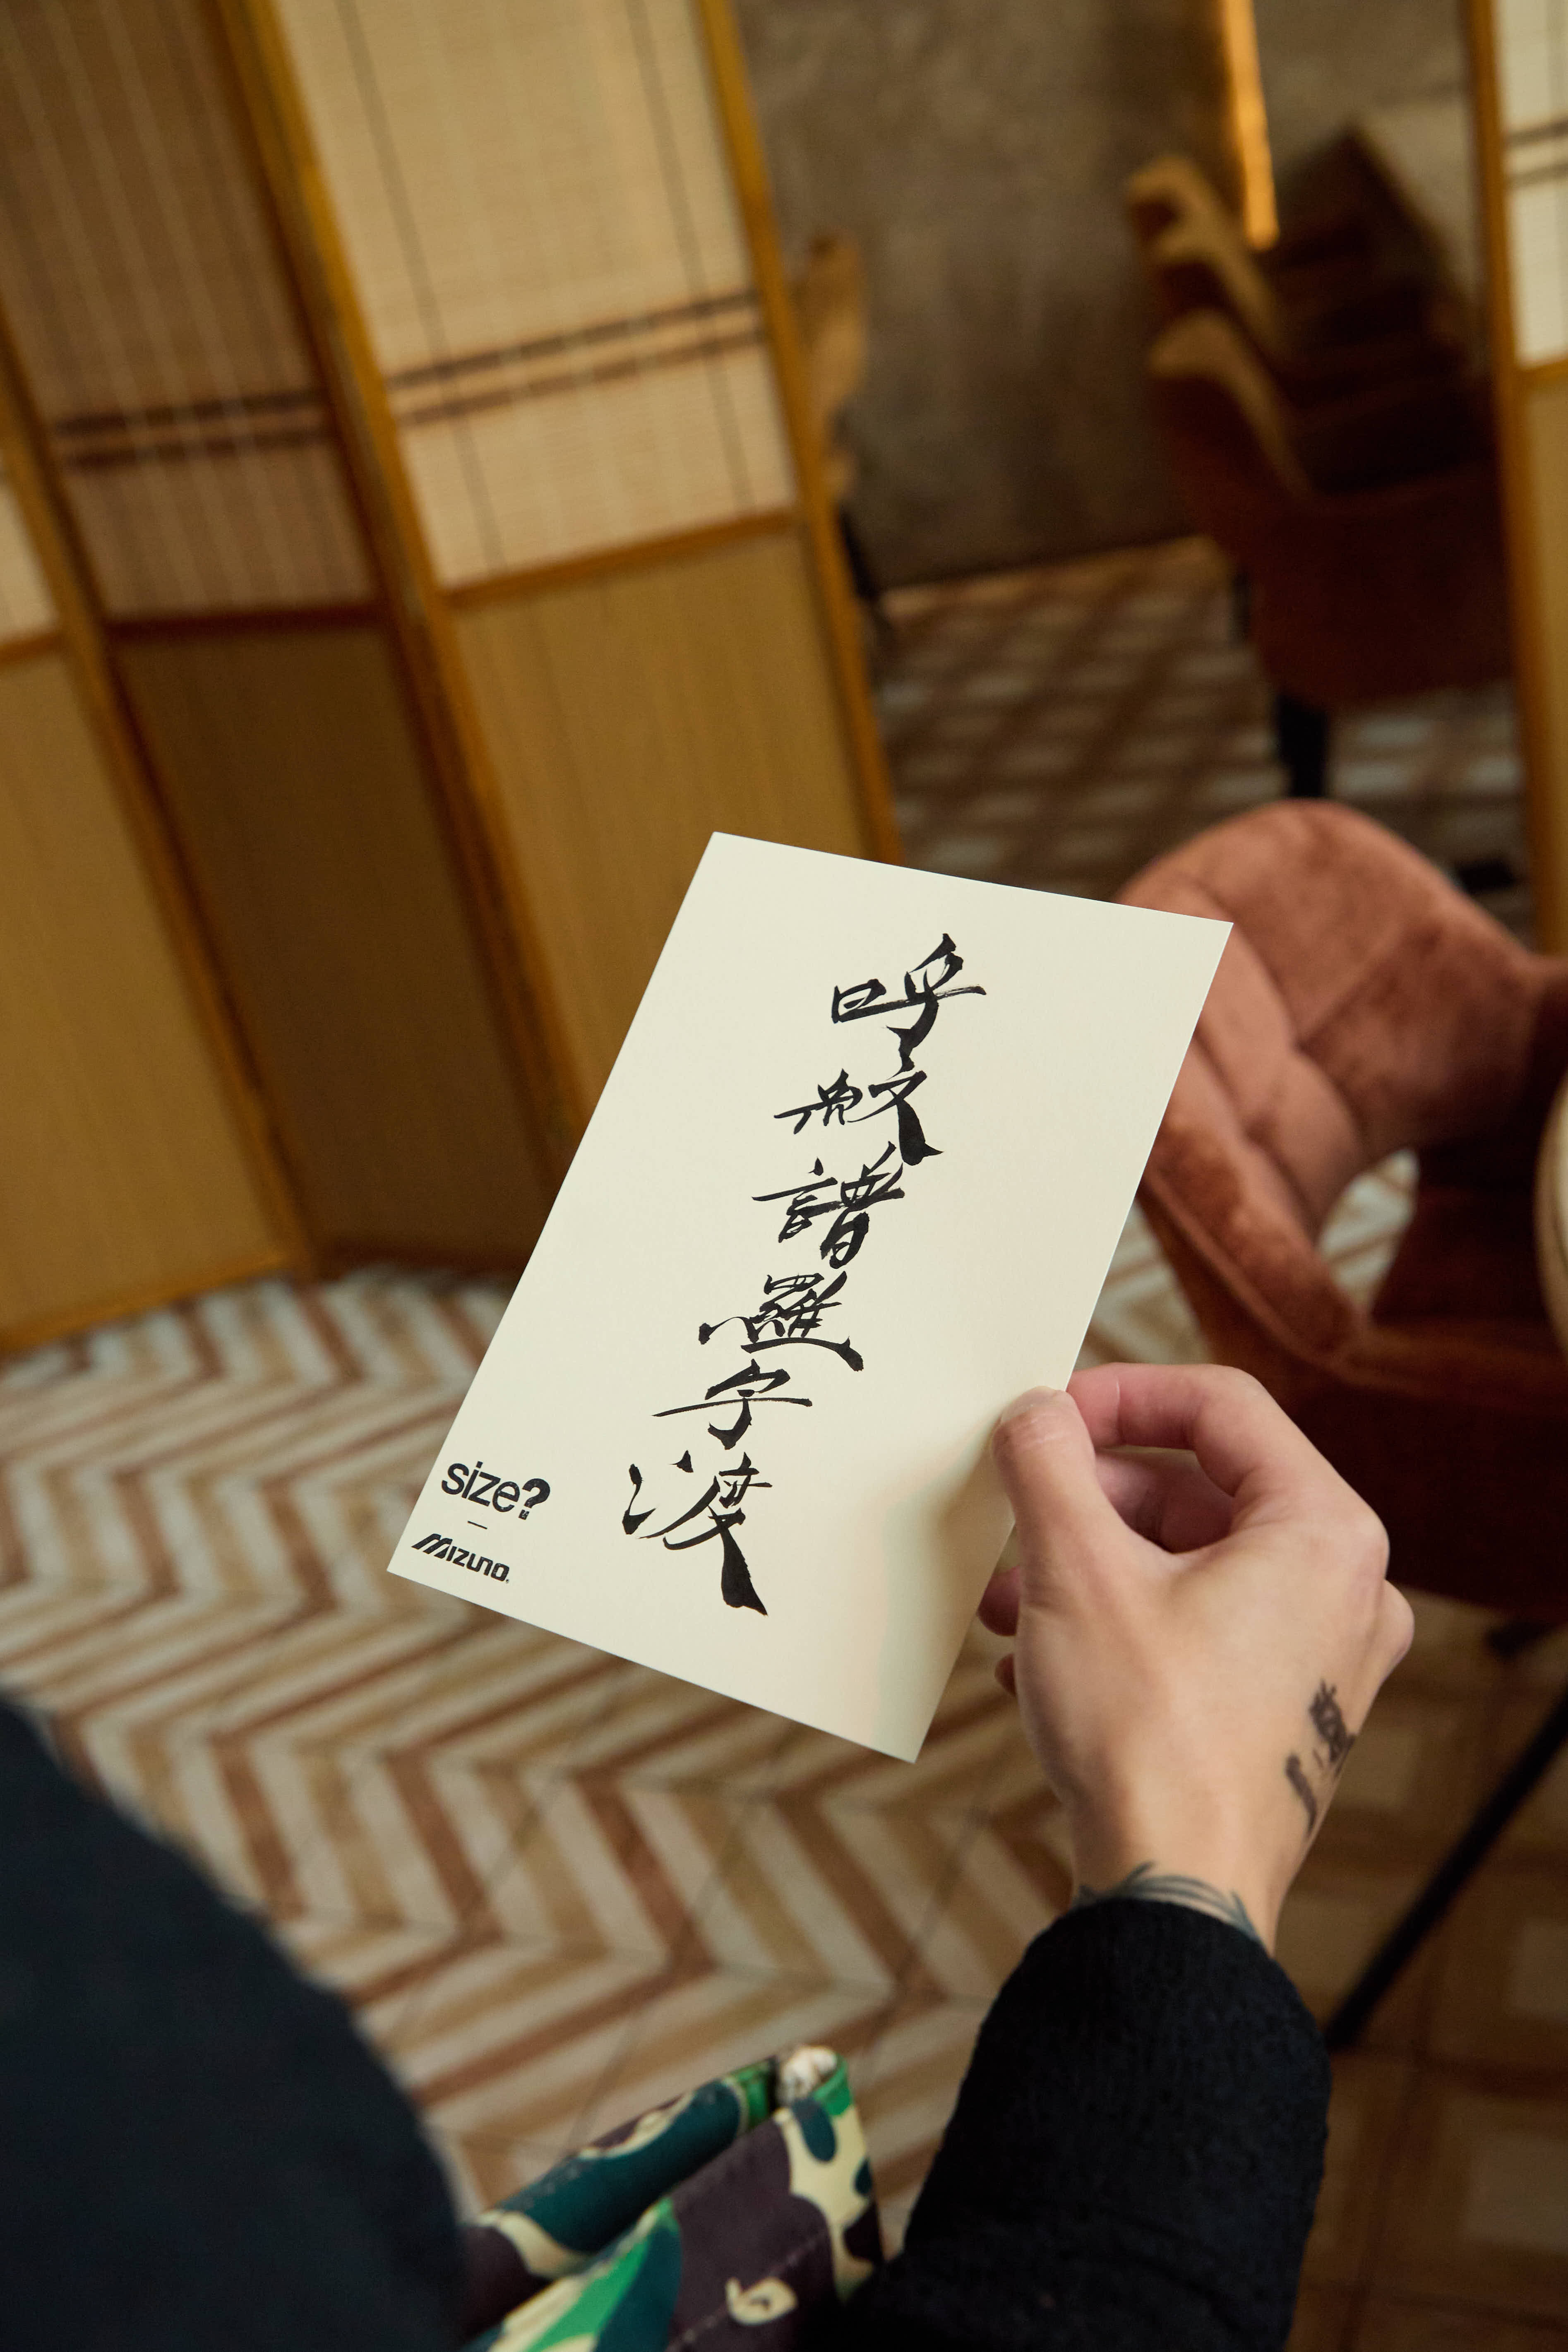 呼
譜
羅
字
渡
size?
MIZUNO